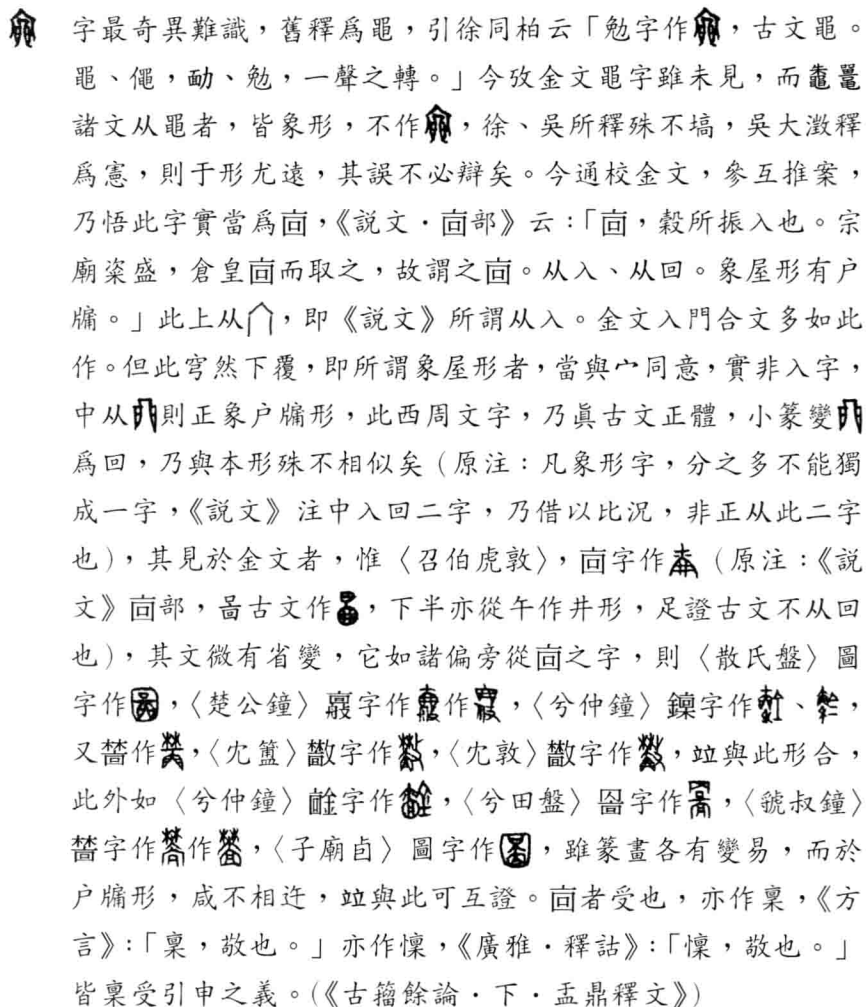 字最奇異難識，舊釋爲黽，引徐同柏云「勉字作，古文黽。
黽、僶，勔、勉，一聲之轉。」今攷金文黽字雖未見，而鼀鼂
諸文从黽者，皆象形，不作，徐、吳所釋殊不塙，吳大澂釋
爲憲，則于形尤遠，其誤不必辯矣。今通校金文，參互推案，
乃悟此字實當爲㐭，《說文．㐭部》云：「㐭，穀所振入也。宗
廟粢盛，倉皇㐭而取之，故謂之㐭。从入、从回。象屋形有户
牖。」此上从，即《說文》所謂从入。金文入門合文多如此
作。但此穹然下覆，即所謂象屋形者，當與宀同意，實非入字，
中从則正象户牖形，此西周文字，乃眞古文正體，小篆變
爲回，乃與本形殊不相似矣（原注：凡象形字，分之多不能獨
成一字，《說文》注中入回二字，乃借以比況，非正从此二字
也），其見於金文者，惟〈召伯虎敦〉，㐭字作（原注：《說
文》㐭部，啚古文作，下半亦從午作井形，足證古文不从回
也），其文微有省變，它如諸偏旁從㐭之字，則〈散氏盤〉圖
字作，〈楚公鐘〉字作作，〈兮仲鐘〉字作、，
又作，〈冘簠〉字作，〈冘敦〉字作，竝與此形合，
此外如〈兮仲鐘〉字作，〈兮田盤〉字作，〈虢叔鐘〉
字作作，〈子廟卣〉圖字作，雖篆畫各有變易，而於
户牖形，咸不相迕，竝與此可互證。㐭者受也，亦作稟，《方
言》：「稟，敬也。」亦作懍，《廣雅．釋詁》：「懍，敬也。」
皆稟受引申之義。（《古籀餘論．下．盂鼎釋文》）